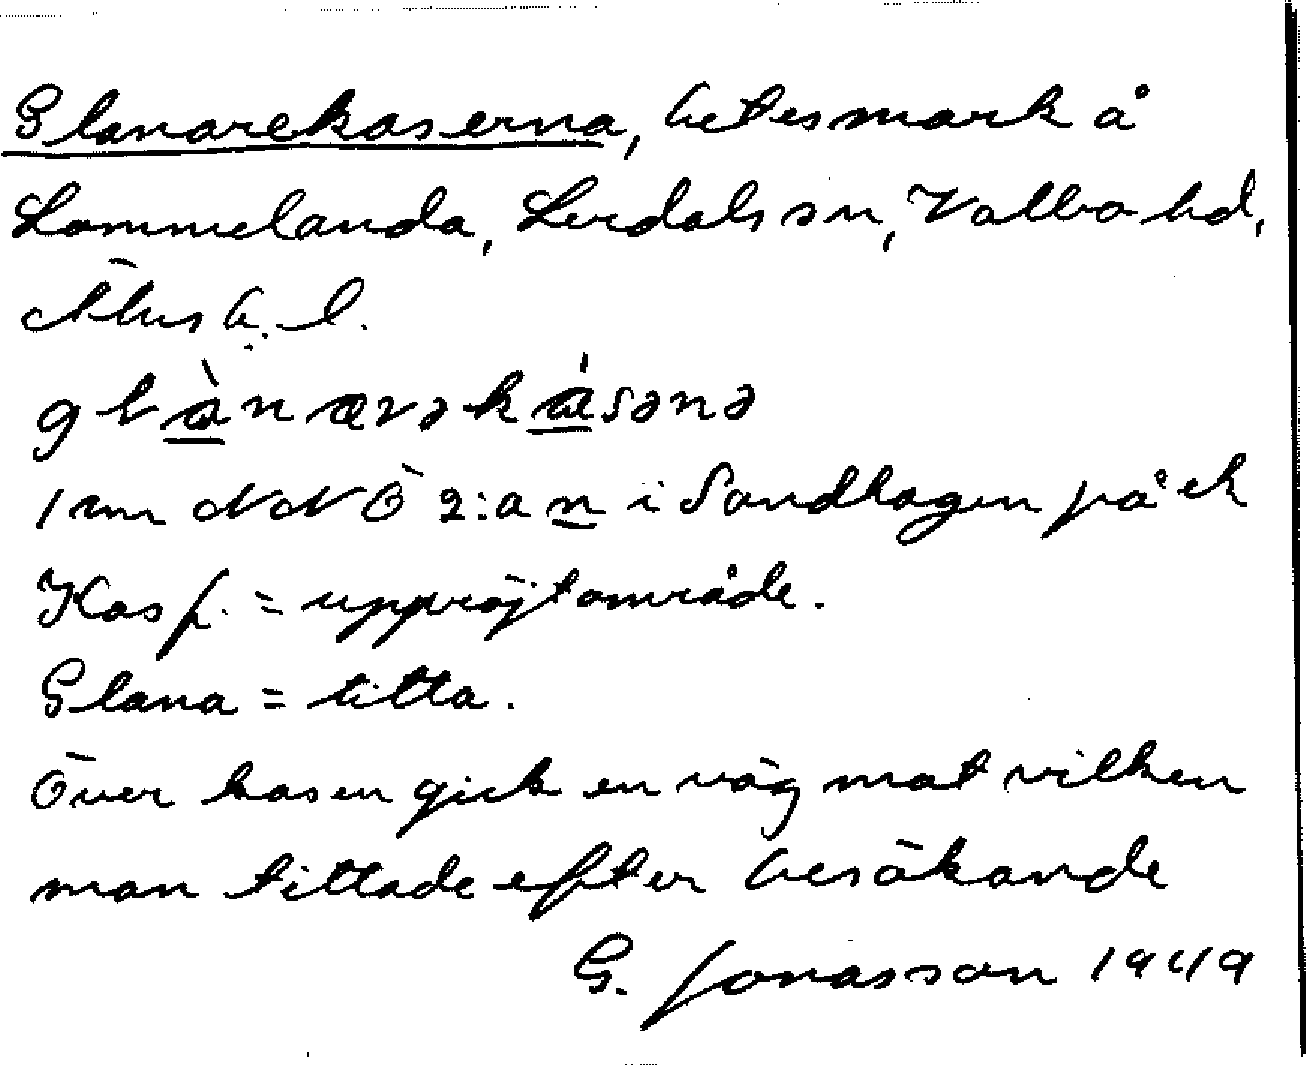 Glanarekaserna, betesmark å
Lommelanda, Lerdals sn, Valbo hd,
Älvsb. l.
1 mm NNÖ 2:an i Sandhagen på ek
Kas f. = uppröjt område.
Glana = titta.
Över kasen gick en väg mot vilken
man tittade efter besökande
G. Jonasson 1949